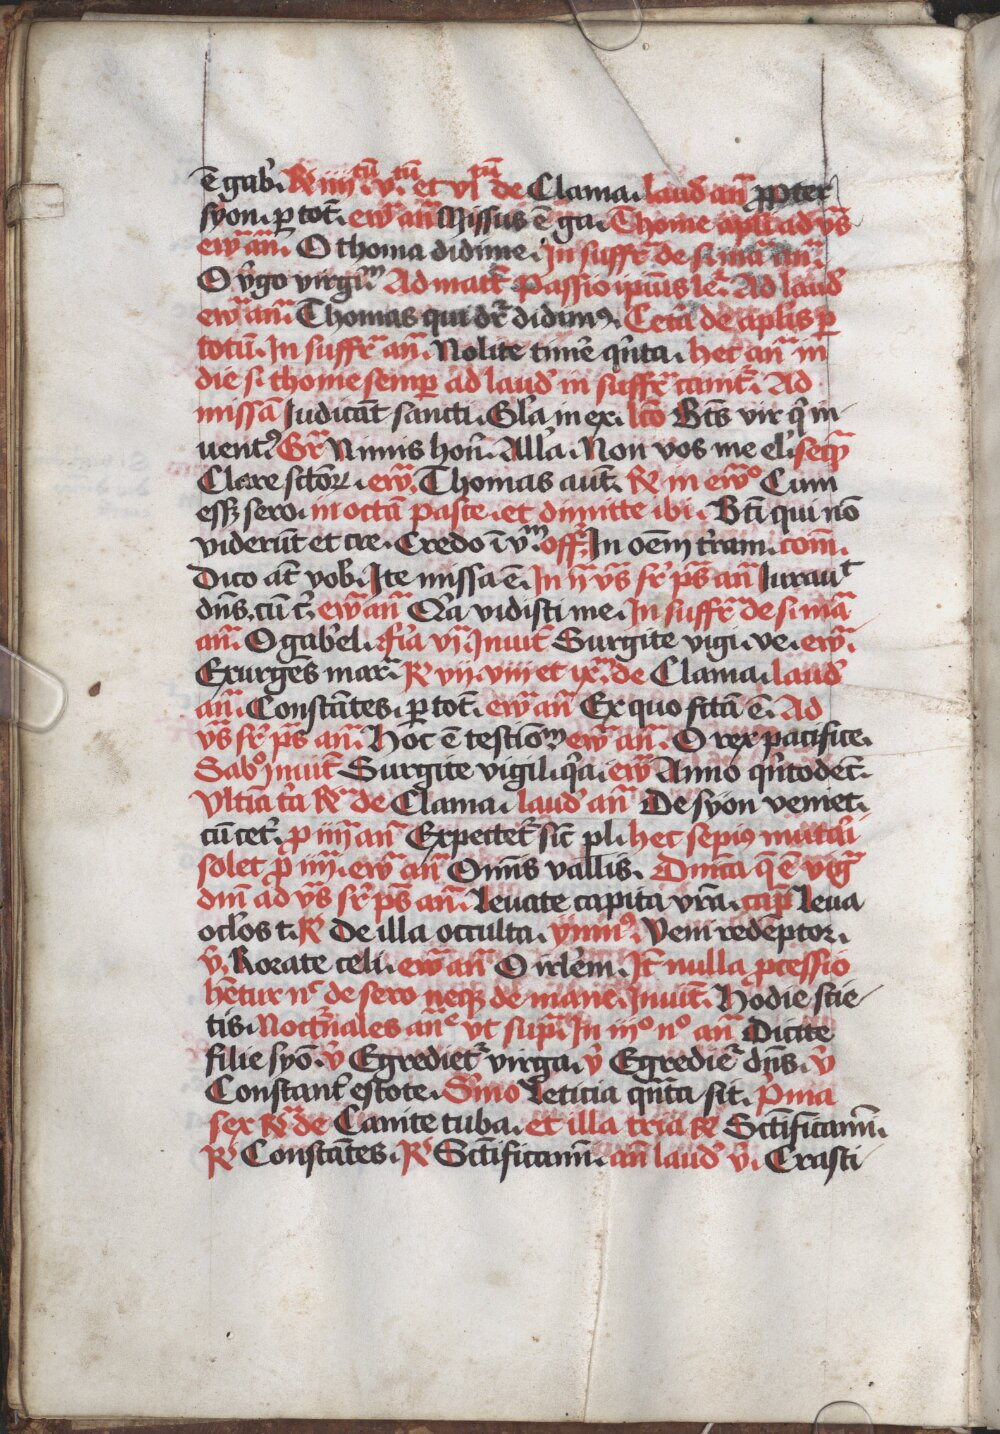 ē gab᷑. R̄ iiiitū. vtū. et vitū de Clama. laud᷑ an̄ ꝓpter
syon. ꝑ tot᷑. ew̄ an̄ Missus ē ga. Thome apl̄i ad vs̄
ew̄ an̄. O thoma didime. In suffr̄ de s. ma᷑ an̄.
O v̾go virgm̄. Ad mat᷑ Passio ipīus le᷑. Ad laud᷑
ew̄ an̄. Thomas qui dr̄ didimꝰ. Cet᷑a de apl̄is ꝑ
totū. In suffr̄ an̄. Nolite timē qn̄ta. hec an̄ in
die s. thome semꝑ ad laud᷑ in suffr̄ cant᷑. Ad
missā Iudicāt sancti. Gl̄a in ex. lc̄o Bt̄s vir q̄ in
uentꝰ Gr̄ Nimis hon̄. Alla. Non vos me el᷑. seqr̄
Clare sctōꝝ. ew̄. Thomas aut᷑. R̄ in ewo Cum
esset sero. in octā pasce. et dimitte ibi. Bt̄i qui nō
viderūt et cre. Credo ī vm̄. off᷑. In oēm tr̄am. com̄.
Dico at᷑ vob᷑. Ite missa ē. In ii vs̄ sr̄ ps̄ an̄ Iuraut
dn̄s. cū t᷑. ew̄ an̄ Qr̄a vidisti me. In suffr̄ de s. ma᷑
an̄. O gab᷑el. fr̄ia vi. Inuit᷑ Surgite vigi. ve. ew̄.
Exurgēs mar᷑. R̄ vii. viii et ix. de Clama. laud᷑
an̄. Constātes. ꝑ tot᷑. ew̄ an̄ Ex quo fct̄ā ē. Ad
vs̄ sr̄ ps̄ an̄. Hoc ē testiom̄ ew̄ an̄. O rex pacifice.
Sab᷑o Inuit᷑ Surgite vigil. qr̄a. ew̄ Anno qn̄todec᷑.
Vltīa t᷑a R̄ de Clama. laud᷑ an̄ De syon veniet.
cū cet᷑. ꝓ iiii an̄ Expectet᷑ sic᷑ pl. hec sepiꝰ mutari
solet ꝓ iiii. ew̄ an̄ Omīs vallis. Dmc̄a q̄ ē vig᷑
dn̄i ad vs̄ sr̄ ps̄ an̄. Leuate capita vr̄a. cap᷑ Leua
oclōs t. R̄ De illa occulta. ymnꝰ. Veni redēptor.
v̄. Rorate celi. ew̄ an̄ O irl̄em. It᷑ nulla ꝓcessio
hētur nc de sero neqꝫ de mane. Inuit᷑. Hodie scie
tis. Noct᷑nales ane vt sup᷑. In iiio no an̄ Dicite
filie syō. v̄ Egrediet᷑ virga. v̄ Egredie᷑ dn̄s. v̄
Constant᷑ estote. S᷑mo Leticia qn̄ta sit. p᷑ma
sex R̄ de Canite tuba. et illa tria R̄ Sct̄ificamī.
R̄ Constātes. R̄ Sct̄ificamī. an̄ laud᷑ v̄. Crasti